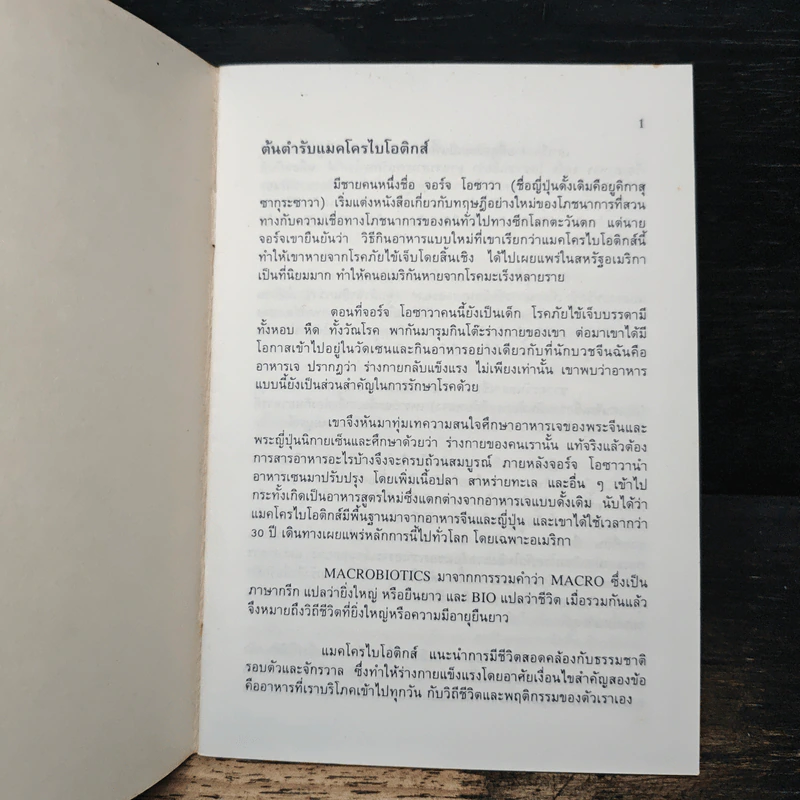 1
ต้นตำรับแมคโครไบโอติกส์
มีชายคนหนึ่งชื่อ จอร์จ โอซาวา (ชื่อญี่ปุ่นดั้งเดิมคือยูคิกาสุ
ซากุระซาวา) เริ่มแต่งหนังสือเกี่ยวกับทฤษฎีอย่างใหม่ของโภชนาการที่สวน
ทางกับความเชื่อทางโภชนาการของคนทั่วไปทางซีกโลกตะวันตก แต่นาย
จอร์จเขายืนยันว่า วิธีกินอาหารแบบใหม่ที่เขาเรียกว่าแมคโครไบโอติกส์นี้
ทำให้เขาหายจากโรคภัยไข้เจ็บโดยสิ้นเชิง ได้ไปเผยแพร่ในสหรัฐอเมริกา
เป็นที่นิยมมาก ทำให้คนอเมริกันหายจากโรคมะเร็งหลายราย
ตอนที่จอร์จ โอซาวาคนนี้ยังเป็นเด็ก โรคภัยไข้เจ็บบรรดามี
ทั้งหอบ หืด ทั้งวัณโรค พากันมารุมกินโต๊ะร่างกายของเขา ต่อมาเขาได้มี
โอกาสเข้าไปอยู่ในวัดเซนและกินอาหารอย่างเดียวกับที่นักบวชจีนฉันคือ
อาหารเจ ปรากฏว่า ร่างกายกลับแข็งแรง ไม่เพียงเท่านั้น เขาพบว่าอาหาร
แบบนี้ยังเป็นส่วนสำคัญในการรักษาโรคด้วย
เขาจึงหันมาทุ่มเทความสนใจศึกษาอาหารเจของพระจีนและ
พระญี่ปุ่นนิกายเซ็นและศึกษาด้วยว่า ร่างกายของคนเรานั้น แท้จริงแล้วต้อง
การสารอาหารอะไรบ้างจึงจะครบถ้วนสมบูรณ์ ภายหลังจอร์จ โอซาวานำ
อาหารเซนมาปรับปรุง โดยเพิ่มเนื้อปลา สาหร่ายทะเล และอื่น ๆ เข้าไป
กระทั่งเกิดเป็นอาหารสูตรใหม่ซึ่งแตกต่างจากอาหารเจแบบดั้งเดิม นับได้ว่า
แมคโครไบโอติกส์มีพื้นฐานมาจากอาหารจีนและญี่ปุ่น และเขาได้ใช้เวลากว่า
30 ปี เดินทางเผยแพร่หลักการนี้ไปทั่วโลก โดยเฉพาะอเมริกา
MACROBIOTICS มาจากการรวมคำว่า MACRO ซึ่งเป็น
ภาษากรีก แปลว่ายิ่งใหญ่ หรือยืนยาว และ BIO แปลว่าชีวิต เมื่อรวมกันแล้ว
จึงหมายถึงวิถีชีวิตที่ยิ่งใหญ่หรือความมีอายุยืนยาว
แมคโครไบโอติกส์ แนะนำการมีชีวิตสอดคล้องกับธรรมชาติ
รอบตัวและจักรวาล ซึ่งทำให้ร่างกายแข็งแรงโดยอาศัยเงื่อนไขสำคัญสองข้อ
คืออาหารที่เราบริโภคเข้าไปทุกวัน กับวิถีชีวิตและพฤติกรรมของตัวเราเอง